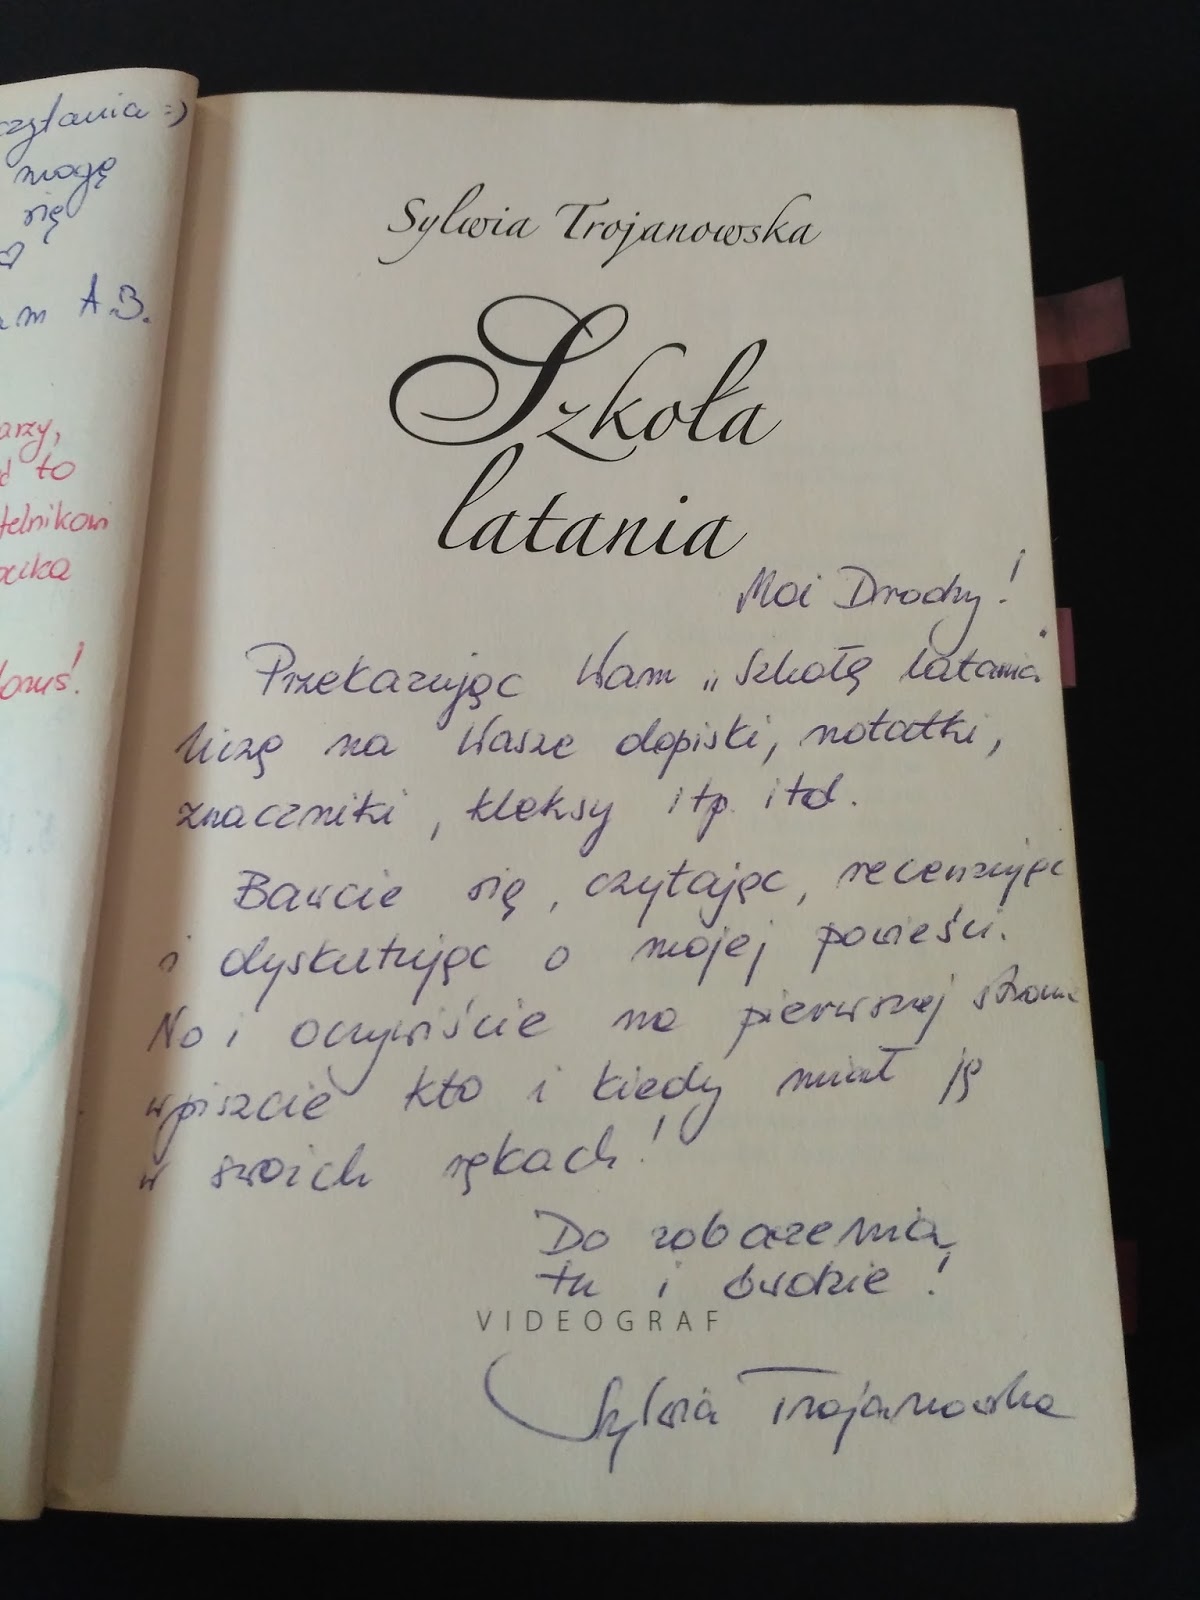 czytania :)
mogę
się
♡
A.B.
arzy,
ć to
telnikowi
Sylwia Trojanowska
Szkoła
latania
Moi Drodzy!
Przekazując Wam „Szkołę latania"
liczę na Wasze dopiski, notatki,
znaczniki, kleksy itp. itd.
Bawcie się, czytając, recenzując
i dyskutując o mojej powieści.
No i oczywiście na pierwszej stronie
wpiszcie kto i kiedy miał ją
w swoich rękach!
Do zobaczenia
tu i ówdzie!
VIDEOGRAF
Sylwia Trojanowska